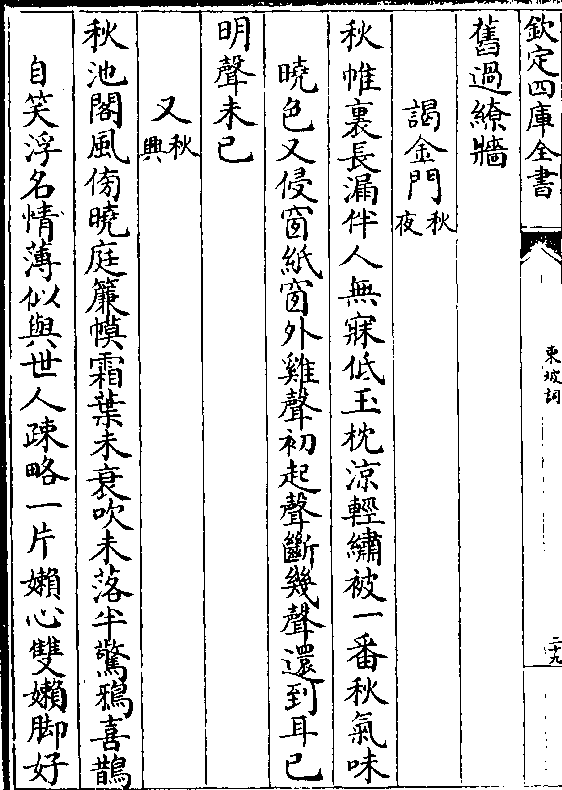 欽定四庫全書
東坡詞
二十九
舊過繚牆
謁金門
秋夜
秋帷裏長漏伴人無寐低玉枕涼輕繡被一番秋氣味
曉色又侵窗紙窗外雞聲初起聲斷幾聲還到耳已
明聲未已
又
秋興
秋池閣風傍曉庭簾幙霜葉未衰吹未落半驚鴉喜鵲
自笑浮名情薄似與世人疎略一片嬾心雙嬾脚好